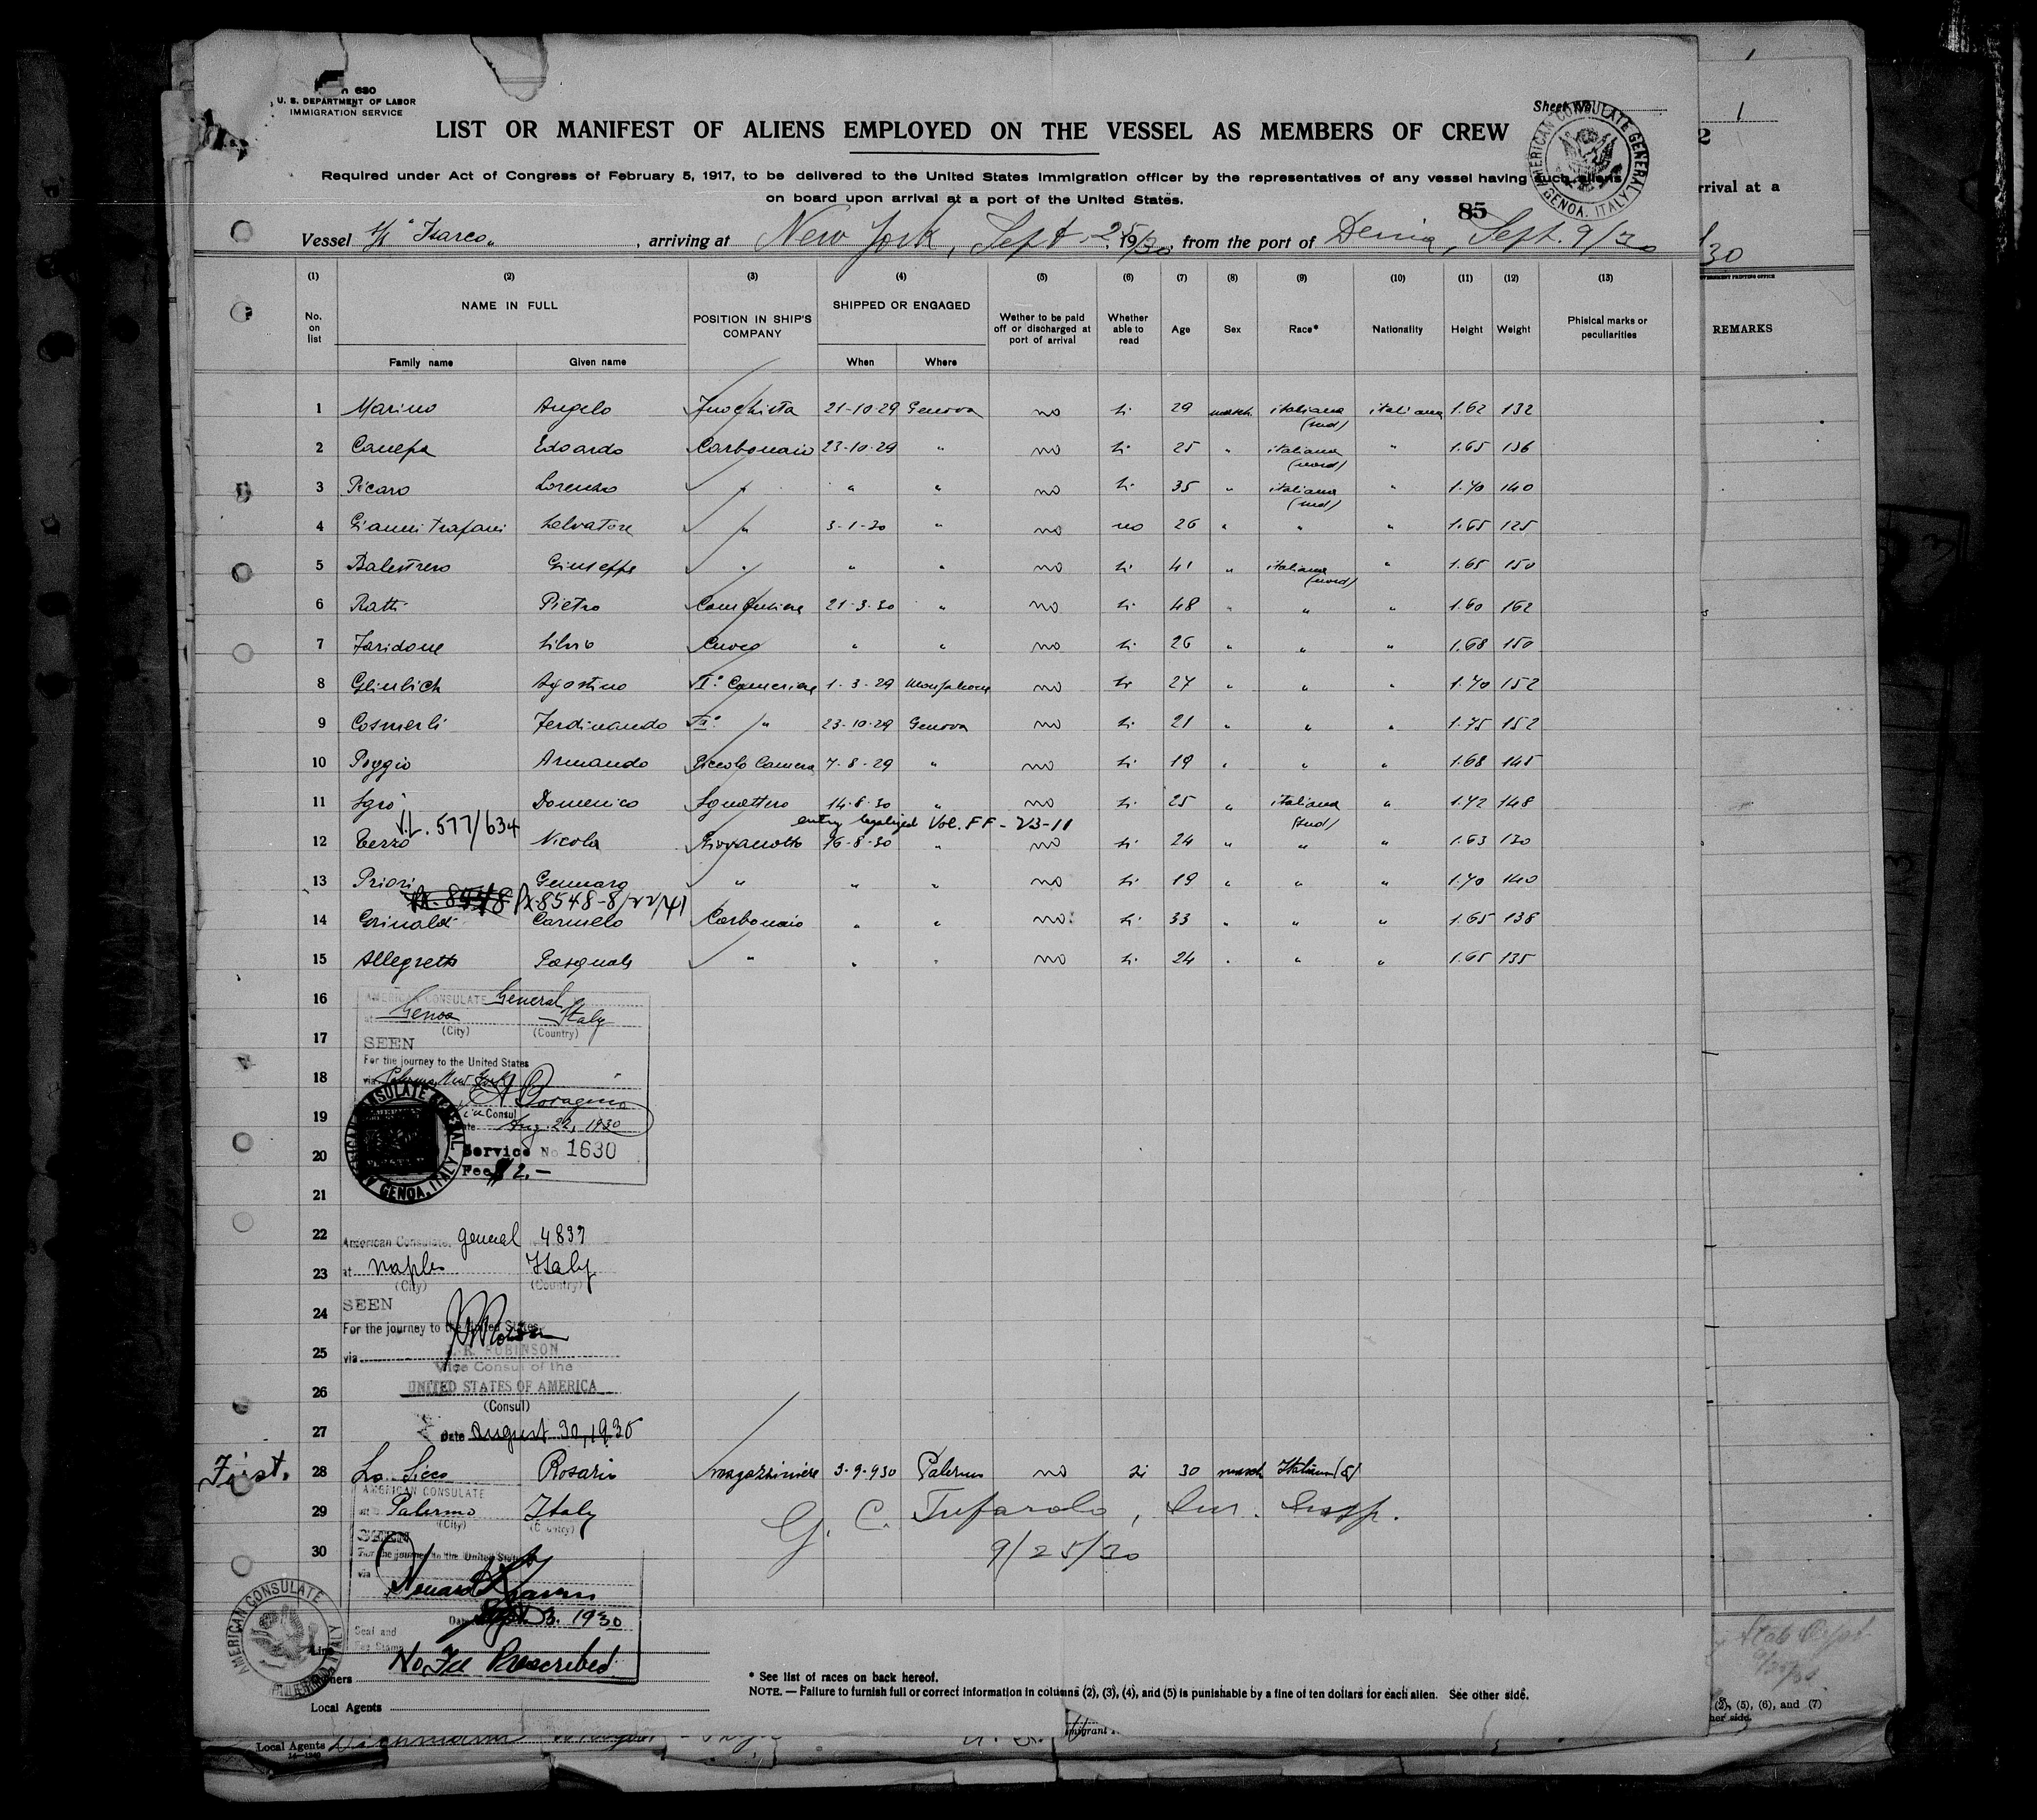 680
U. S. DEPARTMENT OF LABOR
IMMIGRATION SERVICE
Sheet No.
LIST OR MANIFEST OF ALIENS EMPLOYED ON THE VESSEL AS MEMBERS OF CREW
AMERICAN CONSULATE GENERAL GENOA, ITALY
Required under Act of Congress of February 5, 1917, to be delivered to the United States Immigration officer by the representatives of any vessel having such aliens
on board upon arrival at a port of the United States.
85
Vessel "Isarco", arriving at New York, Sept. 25 19/30, from the port of Denia, Sept. 9/30
(1) (2) (3) (4) (5) (6) (7) (8) (9) (10) (11) (12) (13)
No. on list NAME IN FULL POSITION IN SHIP'S COMPANY SHIPPED OR ENGAGED Wether to be paid off or discharged at port of arrival Whether able to read Age Sex Race* Nationality Height Weight Phisical marks or peculiarities
Family name Given name When Where
1 Marino Angelo Fuochista 21-10-29 Genova no si 29 masch. italiana (sud) italiana 1.62 132
2 Canepa Edoardo Carbonaio 23-10-29 " no si 25 " italiana (nord) " 1.65 136
3 Picaro Lorenzo " " " no si 35 " italiana (sud) " 1.70 140
4 Giannitrapani Salvatore " 3-1-30 " no no 26 " " " 1.65 125
5 Balestrero Giuseppe " " " no si 41 " italiana (nord) " 1.65 150
6 Ratti Pietro 21-3-30 " no si 48 " " " 1.60 162
7 Faridone Silvio Cuoco " " no si 26 " " " 1.68 150
8 Agostino I° Cameriere 1-3-29 Monfalcone no si 27 " " " 1.70 152
9 Ferdinando II° " 23-10-29 Genova no si 21 " " " 1.75 152
10 Poggio Armando Piccolo Camera 7-8-29 " no si 19 " " " 1.68 145
11 Sgrò Domenico Sguattero 14-8-30 " no si 25 " italiana (sud) " 1.72 148
V.L. 577/634 entry legalized Vol. FF - 23-11
12 Terzo Nicola Giovanotto 16-8-30 " no si 24 " " " 1.63 130
13 Priori Gennaro " " " no si 19 " " " 1.70 140
8548 8548-8/22/41
14 Grinaldi Carmelo Carbonaio " " no si 33 " " " 1.65 138
15 Allegretti Pasquale " " " no si 24 " " " 1.65 135
16 AMERICAN CONSULATE General
at Genoa Italy
(City) (Country)
17 SEEN
For the journey to the United States
18 via Palermo, New York
19 Consul
Date Aug. 22, 1930
20 Service No 1630
Fee $2.-
GENOA, ITALY
21
22 American Consulate General 4837
23 at Naples Italy
(City) (Country)
24 SEEN
For the journey to the United States
25 via
ROBINSON
Vice Consul of the
26 UNITED STATES OF AMERICA
(Consul)
27 Date August 30, 1930
First. 28 Lo Sicco Rosario magazziniere 3-9-930 Palermo no si 30 masch Italiana (S)
AMERICAN CONSULATE
29 at Palermo Italy
(City) (Country)
G. C. Tufarolo, Imr. Insp.
SEEN
30 For the journey to the United States
9/25/30
via
Date Sept. 3. 1930
Seal and
Fee Stamp
No Fee Prescribed
AMERICAN CONSULATE
Line
Owners
Local Agents
* See list of races on back hereof.
NOTE. — Failure to furnish full or correct information in columns (2), (3), (4), and (5) is punishable by a fine of ten dollars for each alien. See other side.
1
2
rrival at a
30
REMARKS
(2), (5), (6), and (7)
her side.
Local Agents
14—1240
migrant